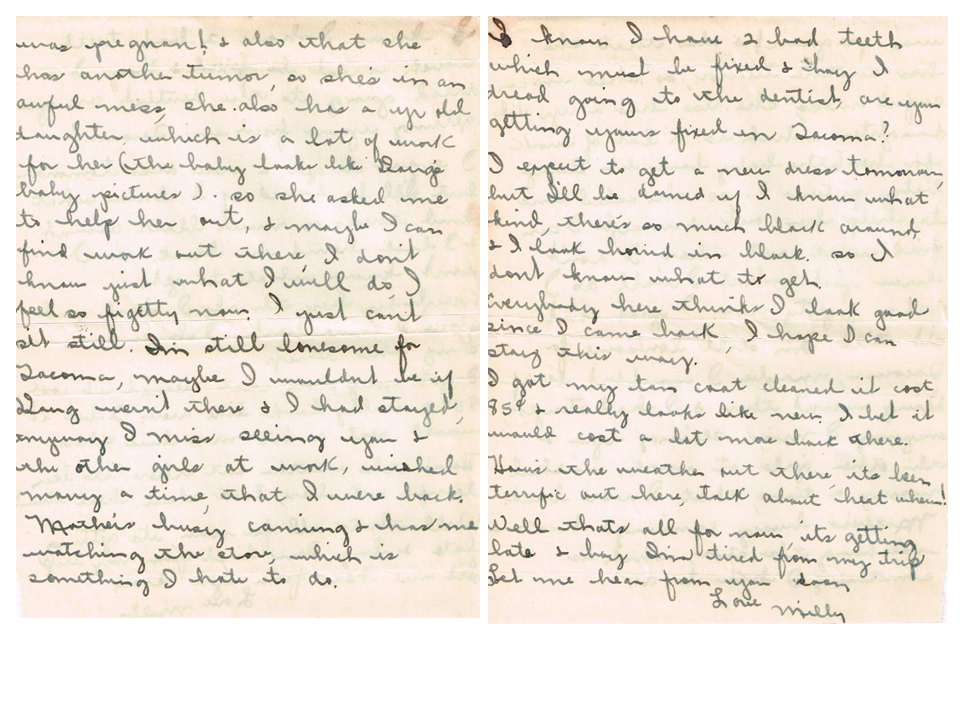 was pregnant! & also that she
has another tumor, so she's in an
awful mess, she also has a yr old
daughter, which is a lot of work
for her (the baby looks lik Doug's
baby pictures). so she asked me
to help her out, & maybe I can
find work out there, I don't
know just what I will do I
feel so figetty now. I just can't
sit still. Im still lonesome for
Tacoma, maybe I wouldnt be if
Doug weren't there & I had stayed,
anyway I miss seeing you &
the other girls at work, wished
many a time that I were back,
Mother's busy canning & has me
watching the stove, which is
something I hate to do.
I know I have 2 bad teeth
which must be fixed & boy I
dread going to the dentist, are you
getting yours fixed in Tacoma?
I expect to get a new dress tomorrow,
but I'll be darned if I know what
kind, there's so much black around,
& I look horrid in black. so I
don't know what to get.
Everybody here thinks I look good
since I came back, I hope I can
stay this way.
I got my tan coat cleaned it cost
85¢ & really looks like new. I bet it
would cost a lot more back there.
How's the weather out there, its been
terrific out here, talk about heat whew!
Well thats all for now, its getting
late & boy Im tired from my trip
Let me hear from you soon
Love Milly